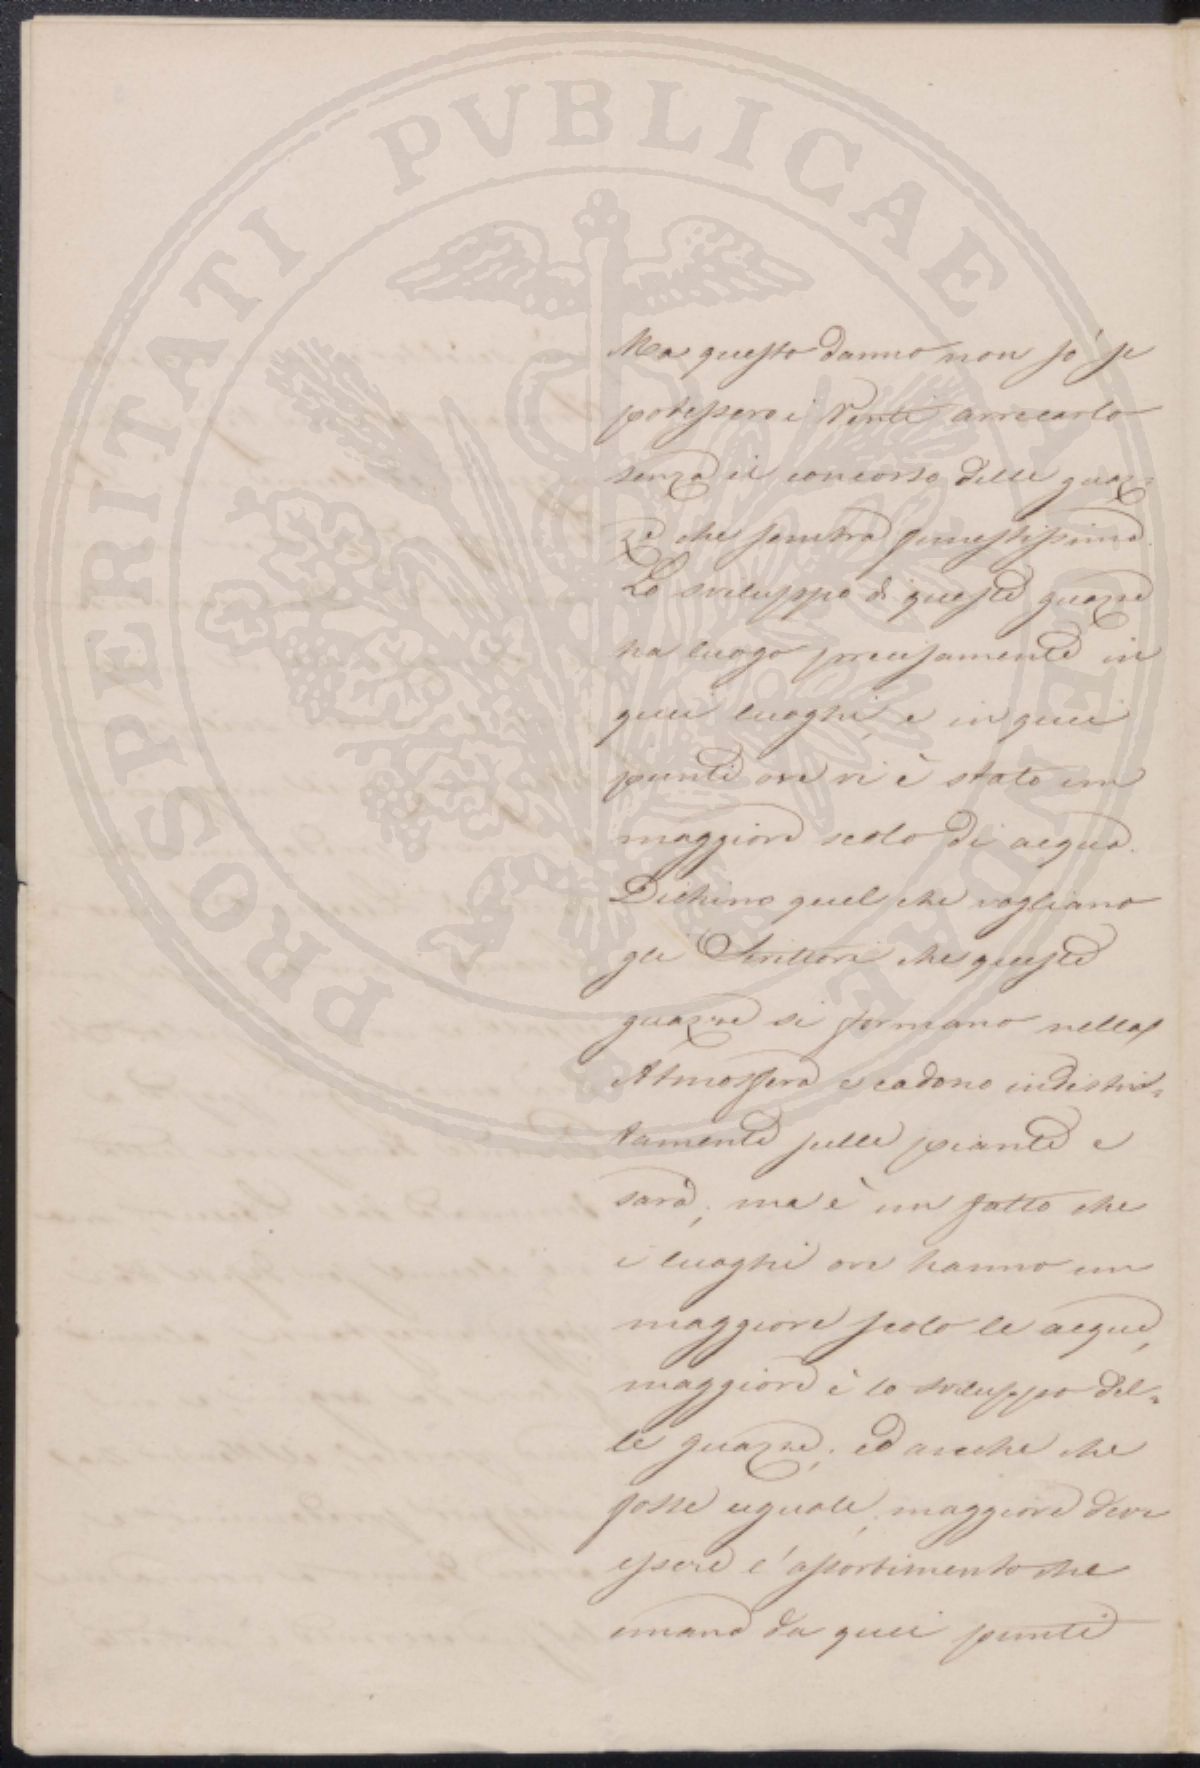 PROSPERITATI PVBLICAE
Ma questo danno non sò se
potessero i Venti arrecarlo
senza il concorso delle guaz-
ze che sembra funestissimo.
Lo sviluppo di queste guazze
ha luogo precisamente in
quei luoghi, e in quei
punti ove vi è stato un
maggiore scolo di acqua.
Dichino quel che vogliano
gli Scrittori che queste
guazze si formano nella
Atmosfera e cadono indistin-
tamente sulle piante e
sarà; ma è un fatto che
i luoghi ove hanno un
maggiore scolo le acque,
maggiore è lo sviluppo del-
le guazze; ed anche che
fosse uguale, maggiore deve
essere l'assortimento che
emana da quei punti